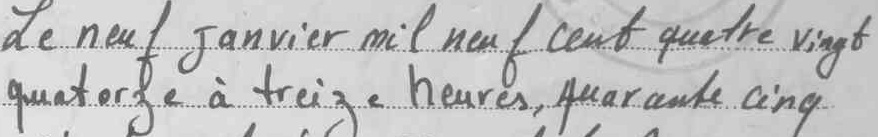 Le neuf janvier mil neuf cent quatre vingt
quatorze à treize heures, quarante cinq